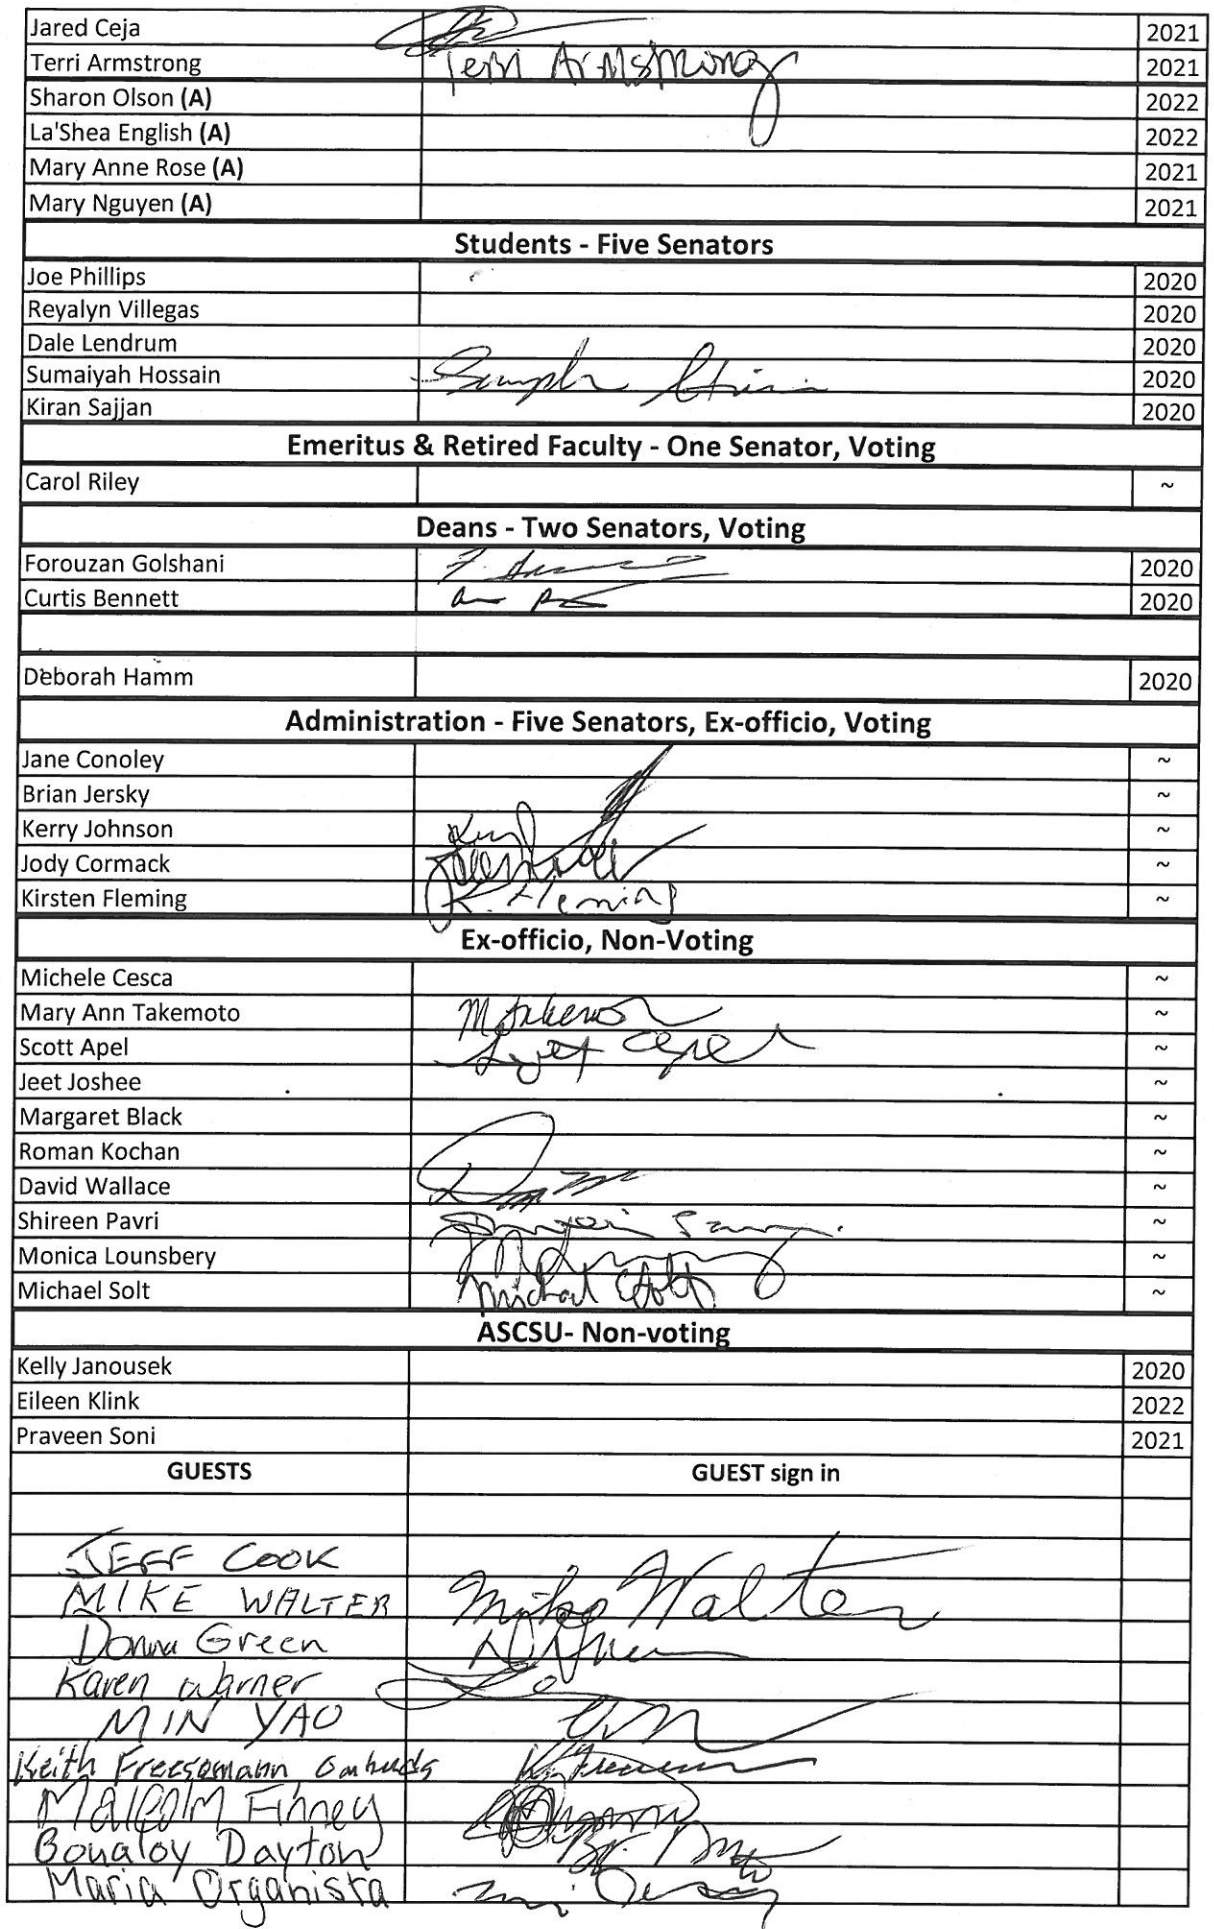 Jared Ceja 2021
Terri Armstrong Terri Armstrong 2021
Sharon Olson (A) 2022
La'Shea English (A) 2022
Mary Anne Rose (A) 2021
Mary Nguyen (A) 2021
Students - Five Senators
Joe Phillips 2020
Reyalyn Villegas 2020
Dale Lendrum 2020
Sumaiyah Hossain 2020
Kiran Sajjan 2020
Emeritus & Retired Faculty - One Senator, Voting
Carol Riley ~
Deans - Two Senators, Voting
Forouzan Golshani 2020
Curtis Bennett 2020
Deborah Hamm 2020
Administration - Five Senators, Ex-officio, Voting
Jane Conoley ~
Brian Jersky ~
Kerry Johnson ~
Jody Cormack ~
Kirsten Fleming K. Fleming ~
Ex-officio, Non-Voting
Michele Cesca ~
Mary Ann Takemoto ~
Scott Apel ~
Jeet Joshee ~
Margaret Black ~
Roman Kochan ~
David Wallace ~
Shireen Pavri ~
Monica Lounsbery ~
Michael Solt Michael Solt ~
ASCSU- Non-voting
Kelly Janousek 2020
Eileen Klink 2022
Praveen Soni 2021
GUESTS GUEST sign in
JEFF COOK
MIKE WALTER Mike Walter
Donna Green
Karen Warner
MIN YAO
Keith Freesemann Ombuds
Malcolm Finney
Boualoy Dayton
Maria Organista